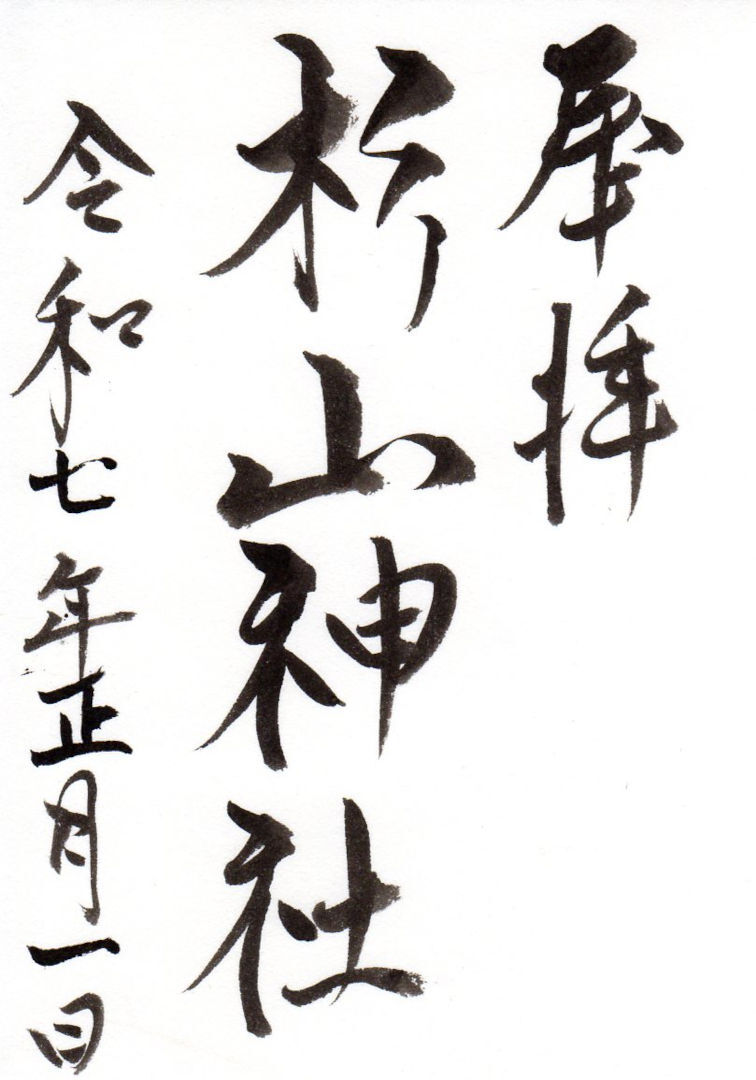 奉拝
杉山神社
令和七年正月一日